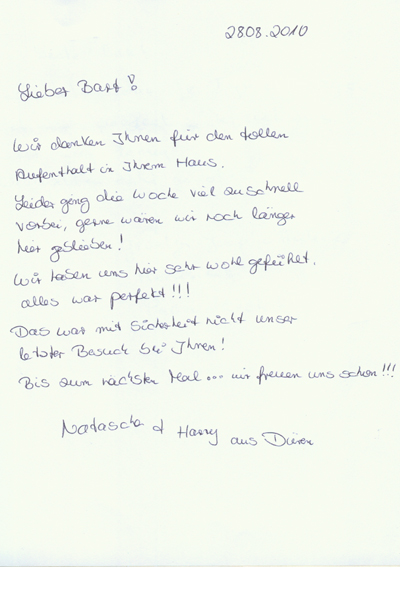 28.08.2010
Lieber Bart!
Wir danken Ihnen für den tollen
Aufenthalt in Ihrem Haus.
Leider ging die Woche viel zu schnell
vorbei, gerne wären wir noch länger
hier geblieben!
Wir haben uns hier sehr wohl gefühlt,
alles war perfekt!!!
Das war mit Sicherheit nicht unser
letzter Besuch bei Ihnen!
Bis zum nächsten Mal... wir freuen uns schon!!!
Natascha & Harry aus Düren